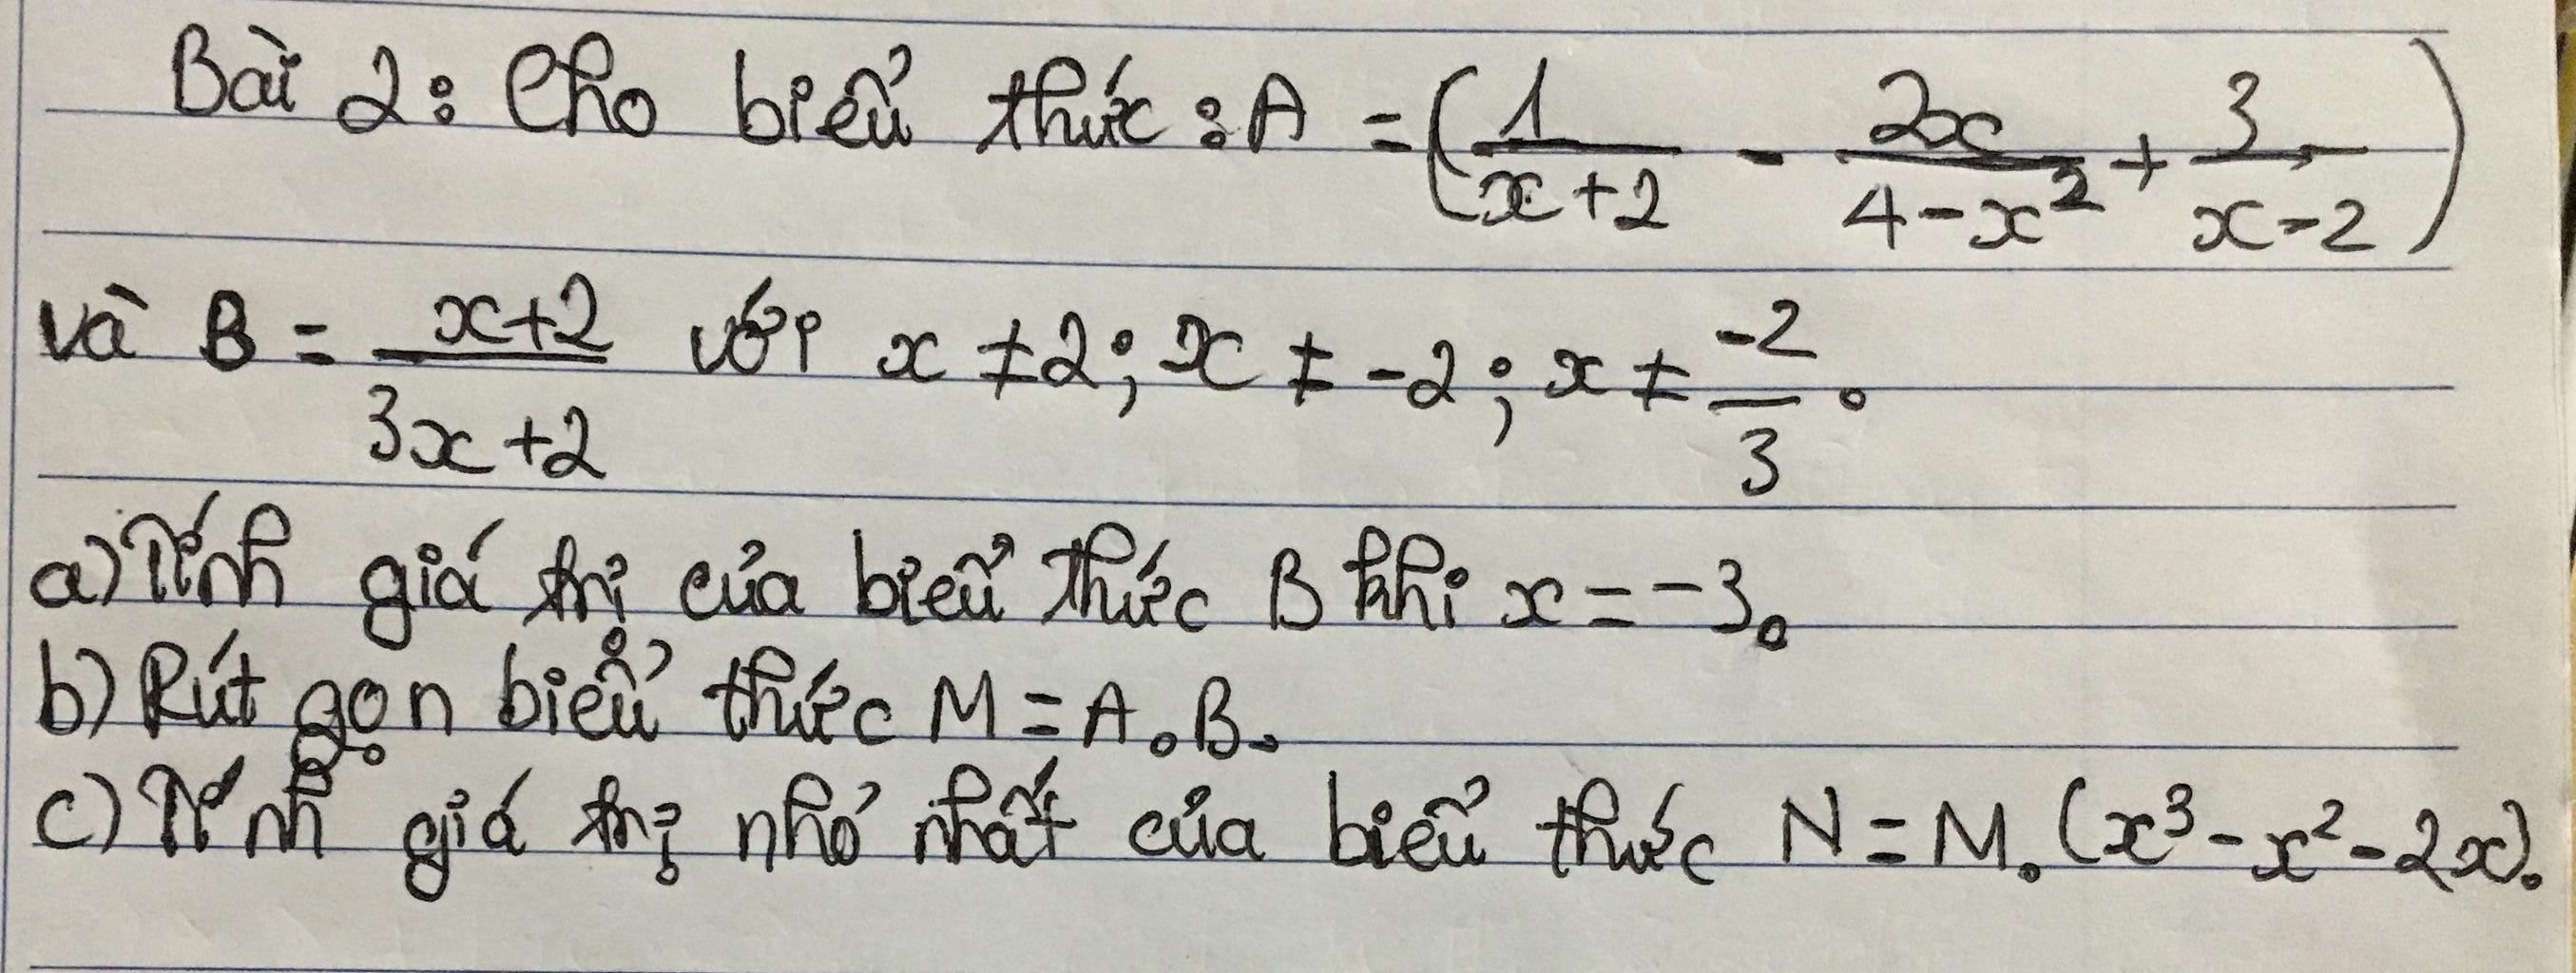 Bài 2: Cho biểu thức : A = (1/(x+2) - 2x/(4-x²) + 3/(x-2))
và B = (x+2)/(3x+2) với x ≠ 2; x ≠ -2; x ≠ -2/3.
a) Tính giá trị của biểu thức B khi x = -3.
b) Rút gọn biểu thức M = A.B.
c) Tính giá trị nhỏ nhất của biểu thức N = M.(x³-x²-2x).